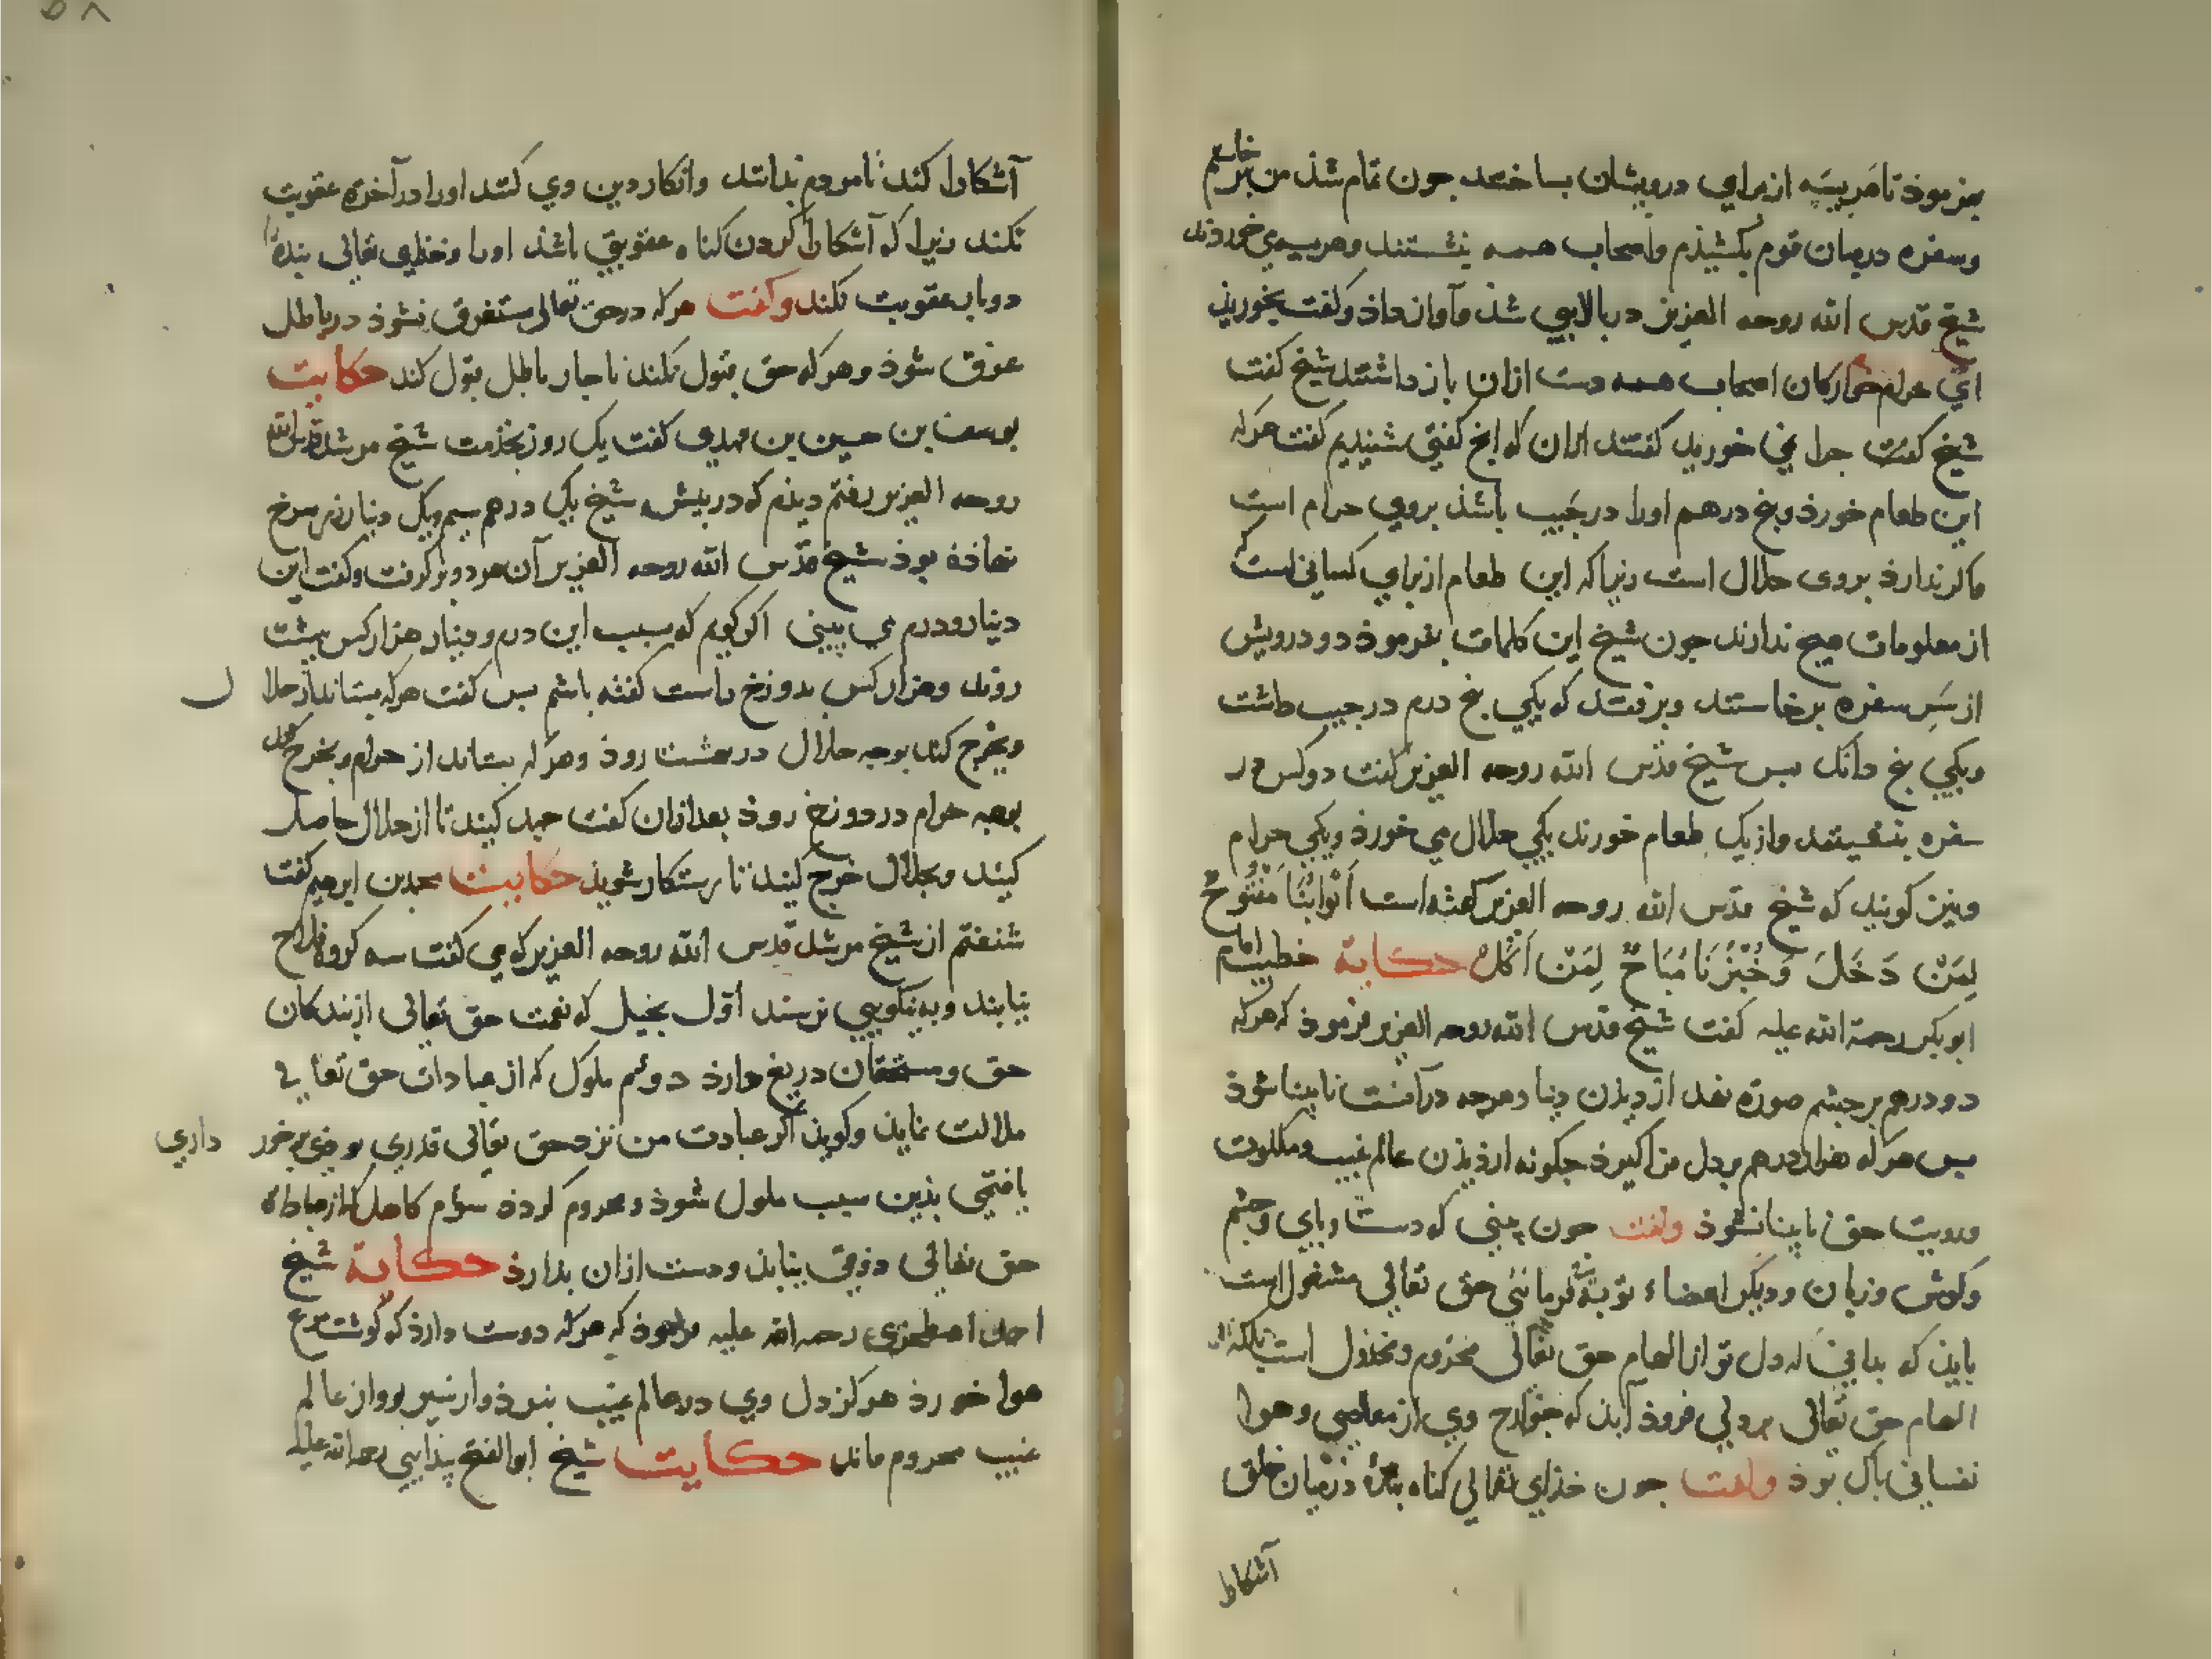 بفرموذ تا هریسه از برای درویشان بساختند جون تمام شذ من برخاستم
وسفره درمیان قوم بکشیذم واصحاب همه بنشستند وهریسه می خوردند
شیخ قدس الله روحه العزیز دربالایی شذ وآواز داذ وکفت بخوریذ
ای حرام خوارکان اصحاب همه دست ازان بازداشتند شیخ کفت
شیخ کفت جرا نمی خوریذ کفتند ازان که انج کفتی شنیدیم کفت هرکه
این طعام خورذ وبنج درهم اورا درجیب باشذ بروی حرام است
واکر ندارذ بروی حلال است زیرا که این طعام ازبرای کسانی است که
از معلومات هیج ندارند جون شیخ این کلمات بفرموذ دو درویش
از سر سفره برخاستند وبرفتند که یکی بنج درم درجیب داشت
ویکی بنج دانک بس شیخ قدس الله روحه العزیز کفت دوکس بر
سفره بنشینند وازیک طعام خورند یکی حلال می خورذ ویکی حرام
وهین کویند که شیخ قدس الله روحه العزیز کفته است اَبْوابُنَا مَفْتُوحٌ
لِمَنْ دَخَلَ وَخُبْزُنَا مُبَاحٌ لِمَنْ اَکَلَ حکایة خطیب امام
ابوبکر رحمة الله علیه کفت شیخ قدس الله روحه العزیز فرموذ که هرکه
دو درهم برجشم صورة نهد از دیذن دنیا وهرجه درآنست نابینا شوذ
بس هرکه هزار درهم بردل فراکیرذ جکونه از دیذن عالم غیب وملکوت
ورویت حق نابینا نشوذ وکفت جون بینی که دست وبای وجشم
وکوش وزبان ودیکر اعضاء تو به نافرمانی حق تعالی مشغول است
بایذ که بدانی که دل تو از الهام حق تعالی محروم ومخذول است بلکه
الهام حق تعالی بردلی فروذ آیذ که جوارح وی از معاصی وهوا
نفسانی باک بوذ وکفت جون خذای تعالی کناه بنده درمیان خلق
آشکارا
آشکارا کند تا مردم بدانند وانکار دین وی کنند اورا درآخرة عقوبت
نکند زیرا که آشکارا کردن کناه عقوبتی باشذ اورا وخذای تعالی بنده را
دوبار عقوبت نکند وکفت هرکه درحق تعالی مستغرق نشوذ درباطل
غرق شوذ وهرکه حق قبول نکند ناجار باطل قبول کند حکایت
یوسف بن حسین بن مهدی کفت یک روز بخذمت شیخ مرشد قدس الله
روحه العزیز رفتم دیذم که دربیش شیخ یک درهم سیم ویک دینار زر سرخ
نهاذه بوذ شیخ قدس الله روحه العزیز آن هردو برکرفت وکفت این
دینار ودرم می بینی اکر کویم که بسبب این درم ودینار هزار کس ببهشت
روند وهزار کس بدوزخ راست کفته باشم بس کفت هرکه بستاند از حلال
وبخرج کند بوجه حلال دربهشت روذ وهرکه بستاند از حرام وبخرج کند
بوجه حرام دردوزخ روذ بعدازان کفت جهد کنید تا از حلال حاصل
کنید وبحلال خرج کنید تا رستکار شوید حکایت محمدبن ابرهیم کفت
شنفتم از شیخ مرشد قدس الله روحه العزیز که می کفت سه کروه فلاح
نیابند وبه نیکویی نرسند اوّل بخیل که نعمت حق تعالی ازبندکان
حق ومستحقان دریغ دارذ دوئم ملول که از عبادات حق تعالی
ملالت نمایذ وکویذ اکر عبادت من نزد حق تعالی قدری بوذی برخورداری
یافتمی بذین سبب ملول شوذ ومحروم کردذ سوّم کاهل که از طاعات
حق تعالی ذوقی نیابذ ودست ازان بدارذ حکایة شیخ
احمد اصطخری رحمه الله علیه فرموذ که هرکه دوست دارذ که کوشت مرغ
هوا خورذ هرکز دل وی درعالم غیب نبوذ واز سیر وپرواز عالم
غیب محروم ماند حکایت شیخ ابوالفتح رحمة الله علیه